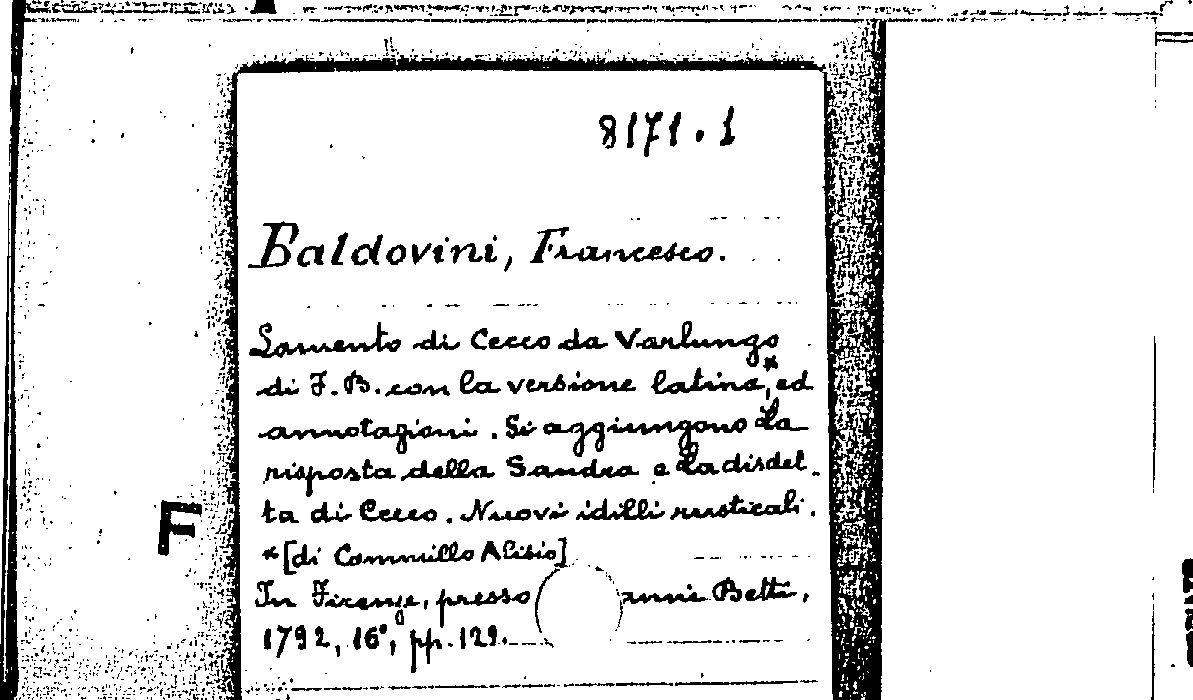 8171.1
Baldovini, Francesco.
Lamento di Cecco da Varlungo
di F. B. con la versione latina,* ed
annotazioni. Si aggiungono La
risposta della Sandra e La disdet-
ta di Cecco. Nuovi idilli rusticali.
*[di Commillo Alisio]
F
In Firenze, presso anni Betti,
1792, 16°, pp. 129.